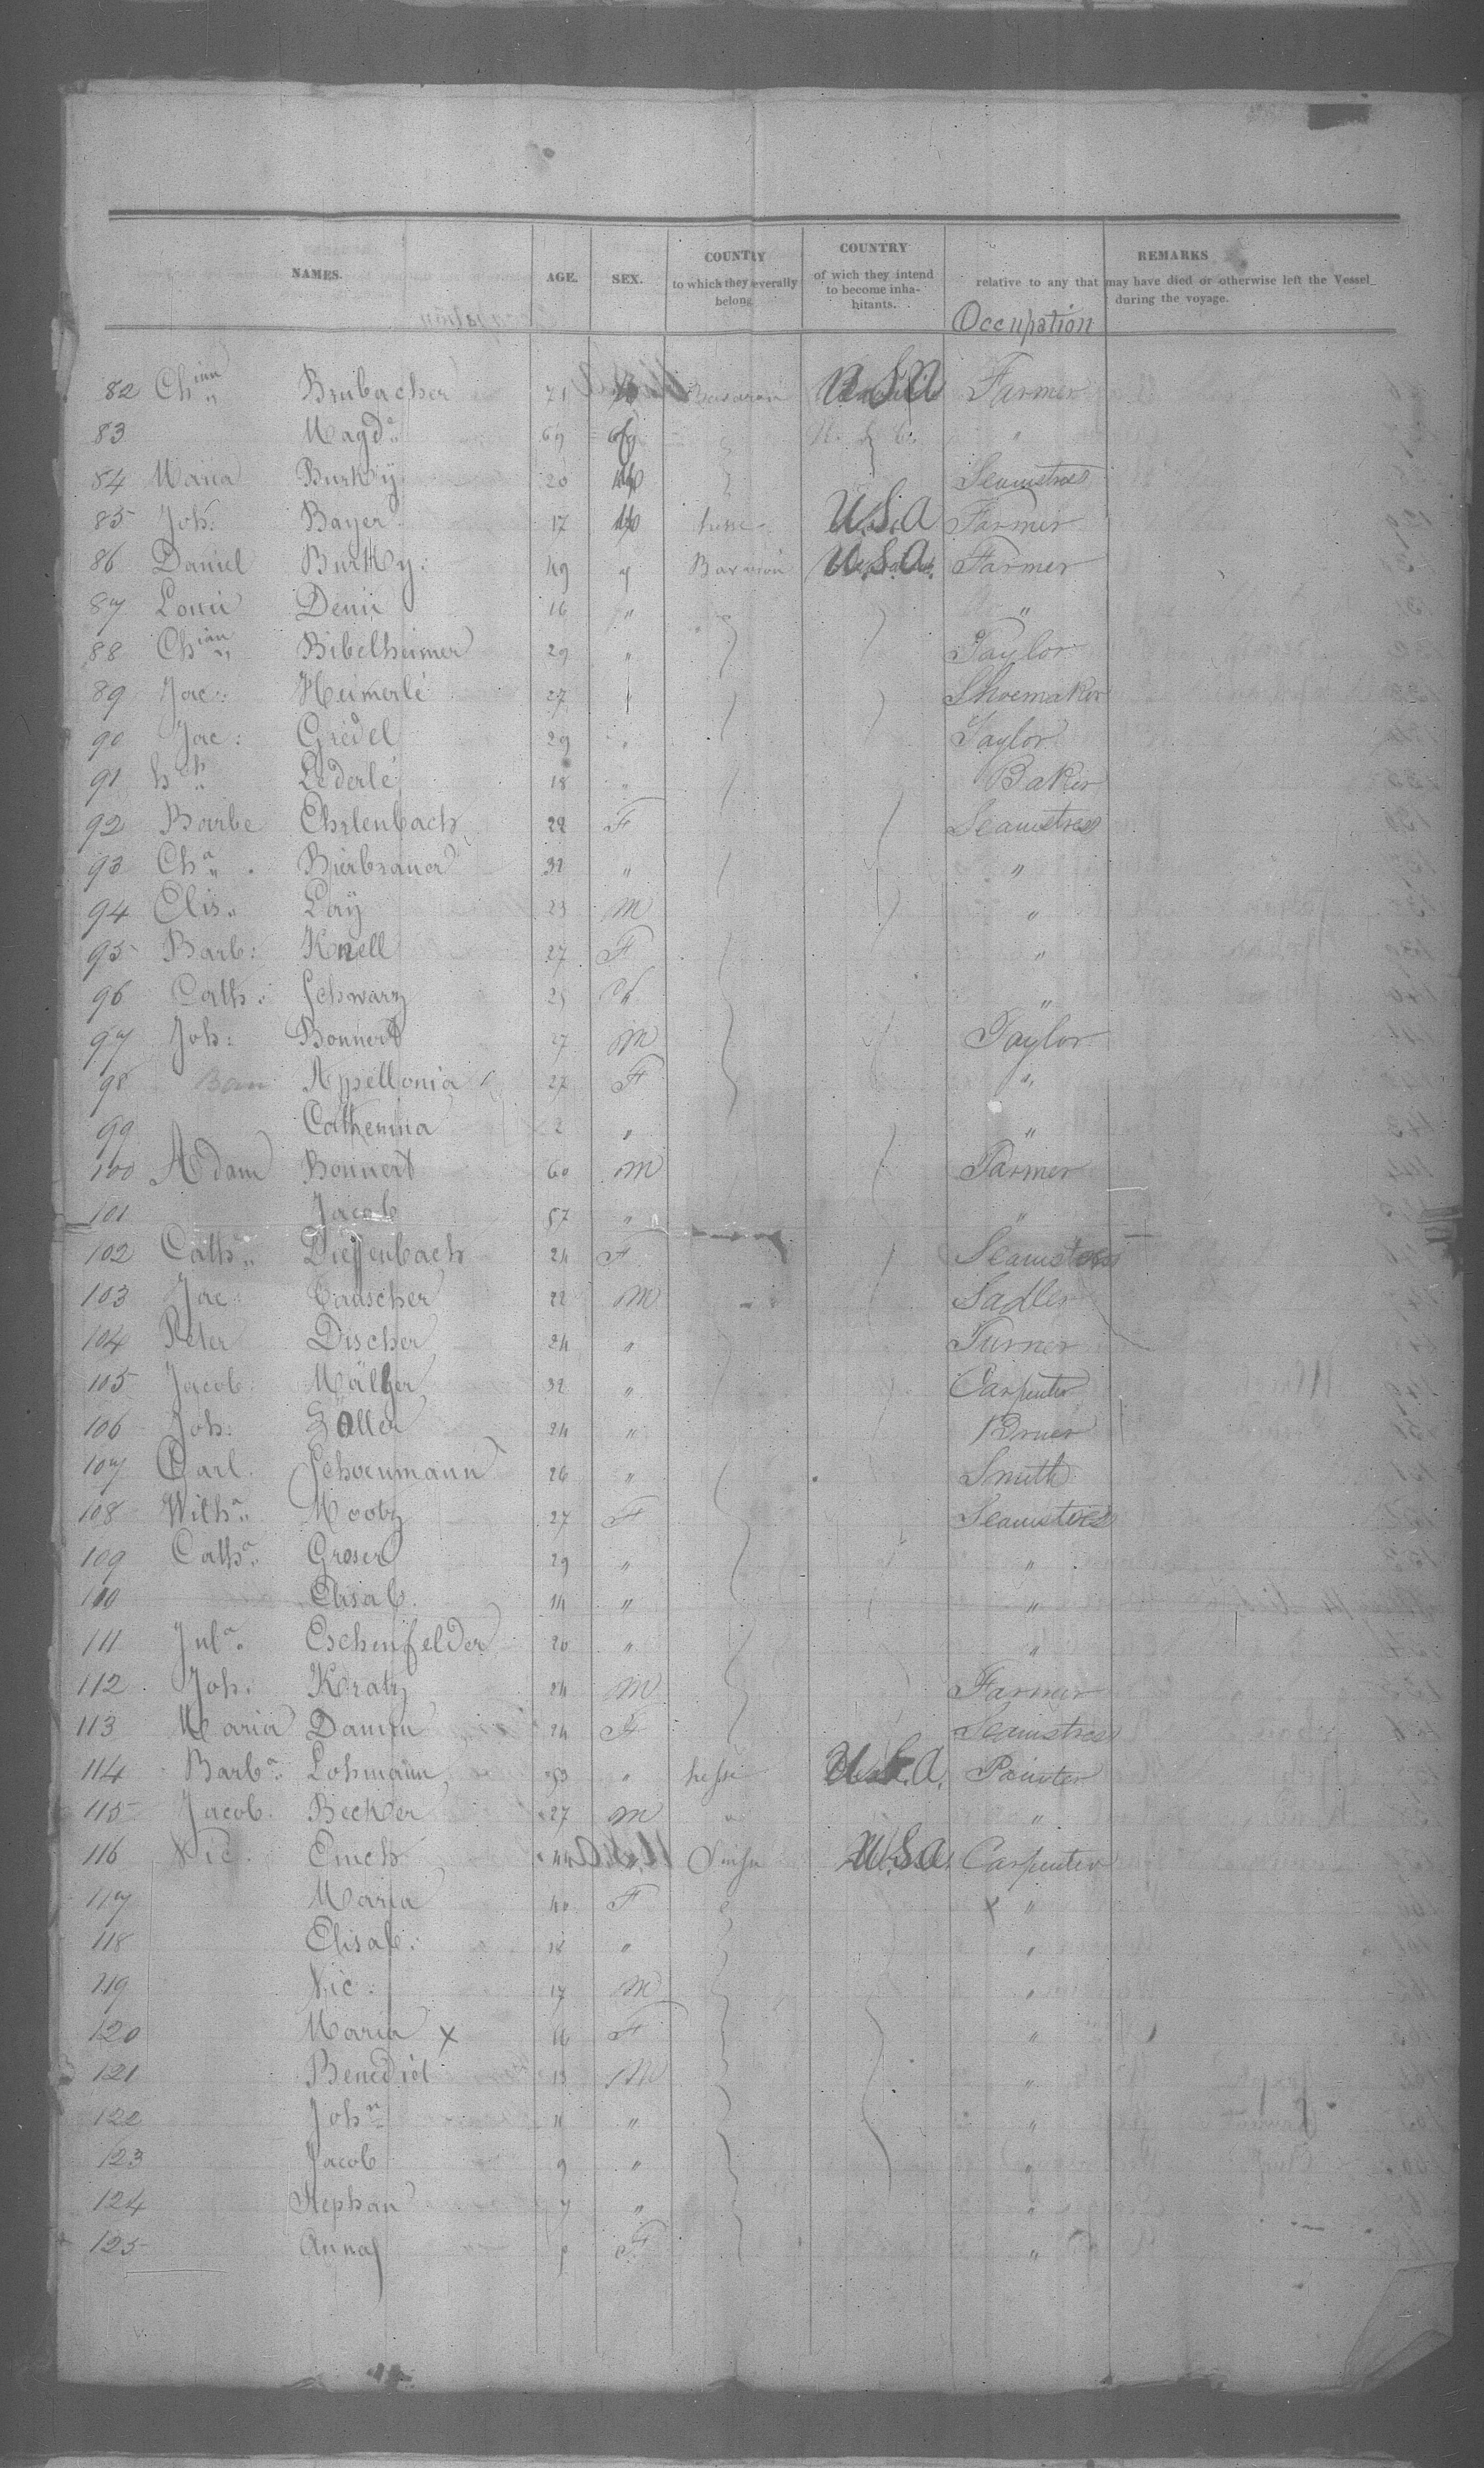 NAMES. AGE. SEX. COUNTRY to which they severally belong. COUNTRY of wich they intend to become inhabitants. REMARKS relative to any that may have died or otherwise left the Vessel during the voyage.
Occupation
82 Chian Brubacher 71 Bavaria U.S.A Farmer
83 Magda 69 "
84 Maria Burkÿ 20 Seamstress
85 Joh. Bayer 17 hesse U.S.A Farmer
86 Daniel Burky 49 " Bavaria U.S.A. Farmer
87 Louis Denis 16 " "
88 Chian Bibelheimer 29 " Taylor
89 Jac: Heimerlé 27 " Shoemaker
90 Jac: Gredel 29 " Taylor
91 hch Lederlé 18 " Baker
92 Barbe Ehrlenbach 28 F Seamstress
93 Cha Bierbrauer 32 " "
94 Elis. Lay 23 M "
95 Barb: Knell 27 F "
96 Cath. Schwarz 25 "
97 Joh: Bonnert 27 M Taylor
98 Appellonia 27 F "
99 Catherina 2 " "
100 Adam Bonnert 60 M Farmer
101 Jacob 57 " "
102 Cath. Dieffenbach 24 F Seamstress
103 Jac: 22 M Sadler
104 Peter Discher 24 " Turner
105 Jacob 32 " Carpenter
106 Joh: Zöller 24 " Bruer
107 Carl. Schoenmann 26 " Smith
108 Wilha. 27 F Seamstress
109 Catha. Groser 29 " "
110 Elisab. 14 " "
111 Jula. Eschenfelder 20 " "
112 Joh. Kratz 24 M Farmer
113 Maria Damm 24 F Seamstress
114 Barba. Lohmann 53 " hesse U.S.A. Painter
115 Jacob. Becker 27 M " "
116 Nic. Emch 44 U.S.A. Carpenter
117 Maria 40 F x "
118 Elisab: 18 " "
119 Nic: 17 M "
120 Maria x 16 F "
121 Benedict 13 M "
122 John 11 " "
123 Jacob 9 " "
124 Stephan 7 " "
125 Anna F "